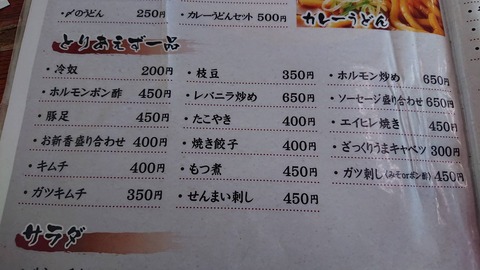 ・〆のうどん 250円
・カレーうどんセット 500円
カレーうどん
とりあえず一品
・冷奴 200円
・ホルモンポン酢 450円
・豚足 450円
・お新香盛り合わせ 400円
・キムチ 400円
・ガツキムチ 350円
・枝豆 350円
・レバニラ炒め 650円
・たこやき 400円
・焼き餃子 400円
・もつ煮 450円
・せんまい刺し 450円
・ホルモン炒め 650円
・ソーセージ盛り合わせ 650円
・エイヒレ焼き 450円
・ざっくりうまキャベツ 300円
・ガツ刺し(みそorポン酢) 450円
サラダ